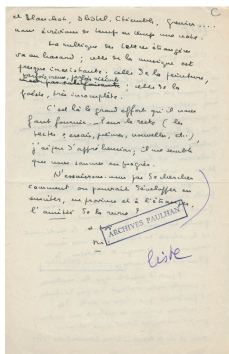 C
et Blanchot, Dhôtel, Etiemble, Grenier.....
nous écrivions de temps en temps une note.
La critique des lettres étrangères
va au hasard ; celle de la musique est
presque inexistante ; celle de la peinture,
parfois
; celle de la
poésie, très incomplète.
C'est là le grand effort qu'il nous
faut fournir. Pour le reste (les
textes : essais, poèmes, nouvelles, etc.),
j'ai peu d'appréhension ; il me semble
que nous sommes en progrès.
N'essaierons-nous pas de chercher
comment on pourrait développer ou
susciter, en province et à l'étranger,
l'amitié de la revue ?
ARCHIVES PAULHAN
liste